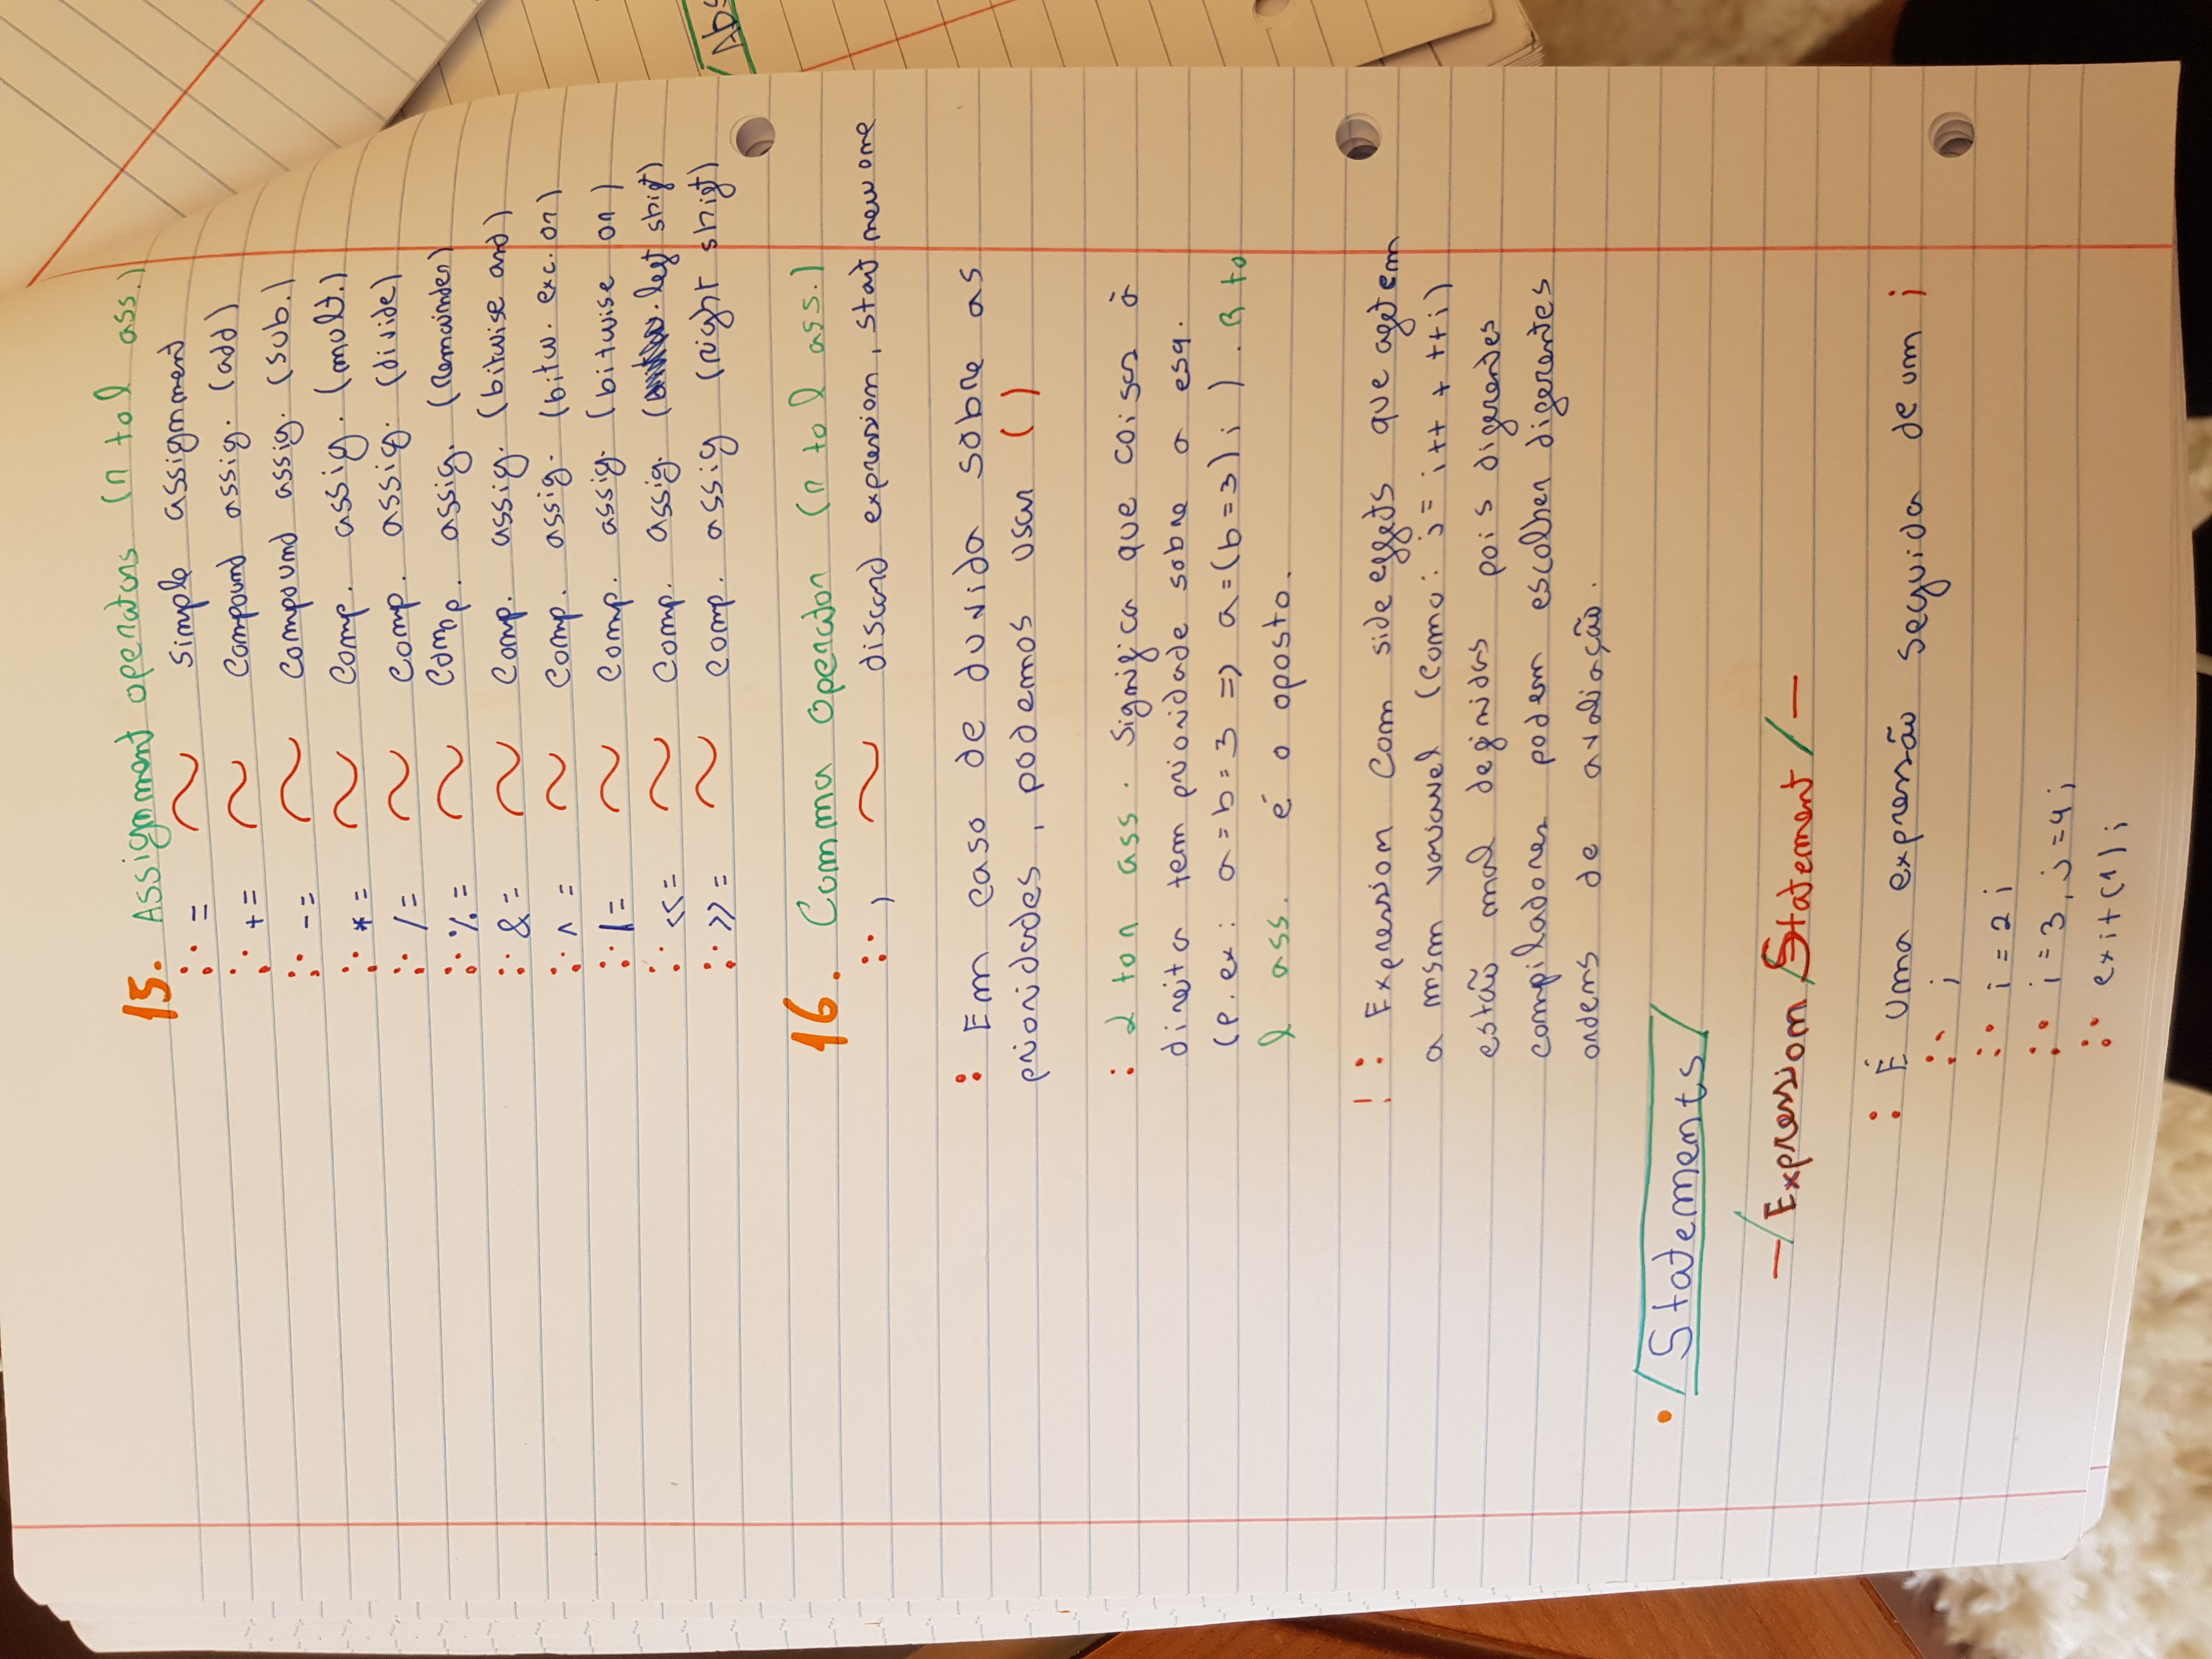 15. Assignment operators (r to l ass.)
:· = ~ simple assignment
:· += ~ Compound assig. (add)
:· -= ~ compound assig. (sub.)
:· *= ~ Comp. assig. (mult.)
:· /= ~ Comp. assig. (divide)
:· %= ~ Comp. assig. (Remainder)
:· &= ~ Comp. assig. (bitwise and)
:· ^= ~ Comp. assig. (bitw. exc. or)
:· |= ~ Comp. assig. (bitwise or)
:· <<= ~ Comp. assig. (left shift)
:· >>= ~ comp. assig (right shift)
16. Comma Operator (r to l ass.)
:· , ~ discard expression, start new one
: Em caso de duvida sobre as
prioridades, podemos usar ( )
: L to r ass. Significa que coisas à
direita tem prioridade sobre a esq.
(p. ex: a=b=3 => a=(b=3); ). R to
l ass. é o oposto.
! : Expression com side effets que afetem
a msm variavel (como: j= i++ + ++i)
estão mal definidas pois diferentes
compiladores podem escolher diferentes
ordems de avaliação.
Abs
• Statements
-/Expression Statement/-
: É uma expressão seguida de um ;
:· ;
:· i=2;
:· i=3, j=4;
:· exit(1);